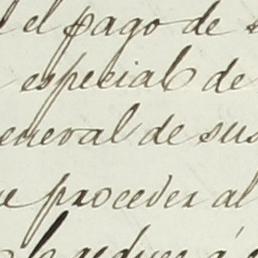 el pago de
especial de
eneral de sus
proceder al
reduce á